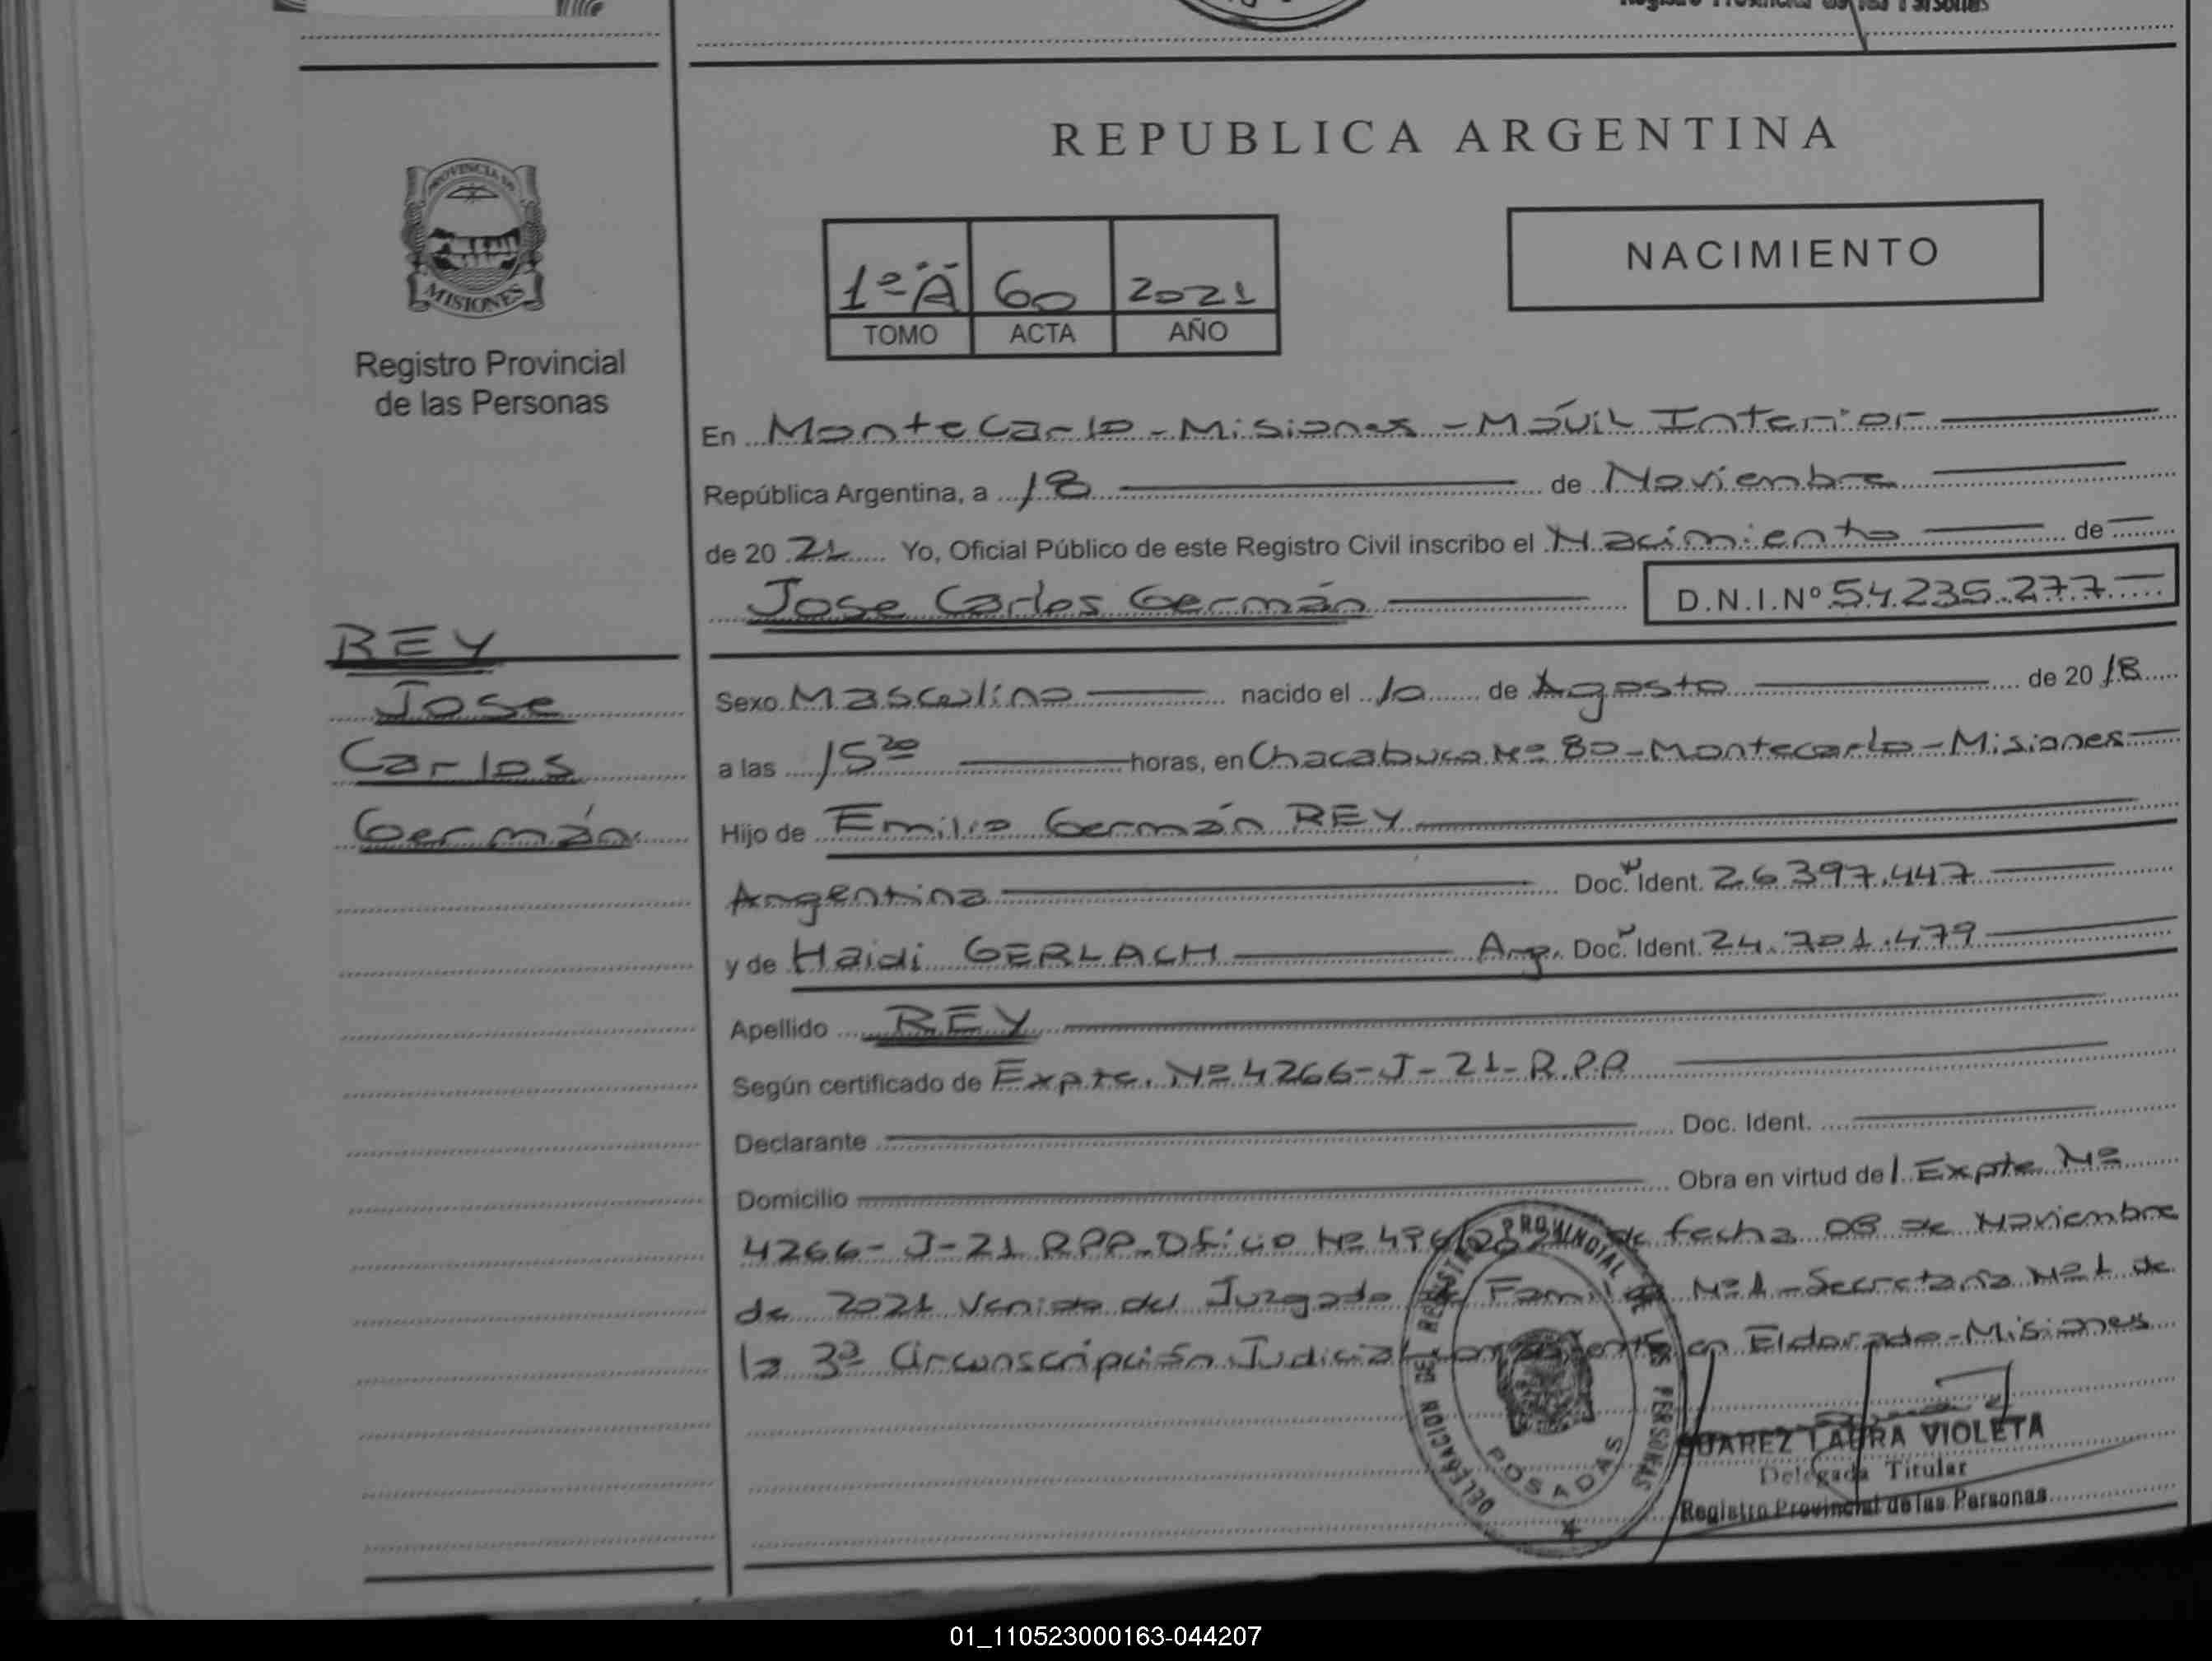 Registro Provincial de las Personas
REPUBLICA ARGENTINA
PROVINCIA DE
MISIONES
Registro Provincial
de las Personas
NACIMIENTO
1º A 60 2021
TOMO ACTA AÑO
En Montecarlo - Misiones - Móvil Interior
República Argentina, a 18 de Noviembre
de 20 21 Yo, Oficial Público de este Registro Civil inscribo el Nacimiento de
Jose Carlos Germán D.N.I.Nº 54.235.277
REY
Jose
Carlos
Germán
Sexo Masculino nacido el 10 de Agosto de 20 18
a las 15 20 horas, en Chacabuco Nº 80 - Montecarlo - Misiones
Hijo de Emilio Germán REY
Argentina Doc. Ident. 26.397.447
y de Haidi GERLACH Arg. Doc. Ident. 24.701.479
Apellido REY
Según certificado de Expte. Nº 4266-J-21-R.P.P
Declarante Doc. Ident.
Domicilio Obra en virtud del Expte Nº
4266-J-21 RPP. Oficio Nº de fecha 08 de Noviembre
de 2021 Venido del Juzgado de Familia Nº 1 - Secretaría Nº 1 de
la 3ª Circunscripción Judicial en Eldorado - Misiones
DELEGACION DEL REGISTRO PROVINCIAL DE LAS PERSONAS
POSADAS
SUAREZ LAURA VIOLETA
Delegada Titular
Registro Provincial de las Personas
01_110523000163-044207